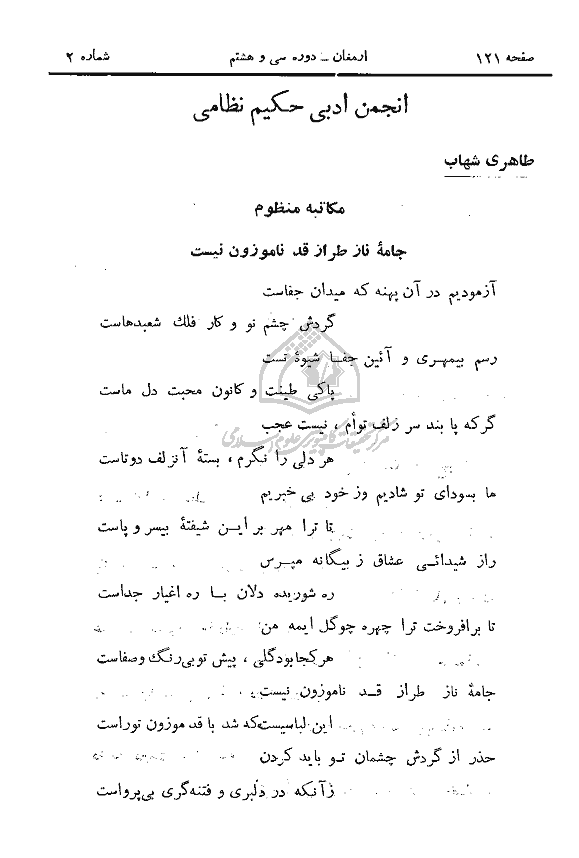 صفحه ۱۲۱ ارمغان ـ دوره سی و هشتم شماره ۲
انجمن ادبی حکیم نظامی
طاهری شهاب
مکاتبه منظوم
جامهٔ ناز طراز قد ناموزون نیست
آزمودیم در آن پهنه که میدان جفاست
گردش چشم تو و کار فلك شعبدهاست
رسم بیمهری و آئین جفا شیوهٔ تست
پاکی طینت و کانون محبت دل ماست
گر که پا بند سر زلف توأم ، نیست عجب
هر دلی را نگرم ، بستهٔ آنزلف دوتاست
ما بسودای تو شادیم وز خود بی خبریم
تا ترا مهر بر این شیفتهٔ بیسر و پاست
راز شیدائی عشاق ز بیگانه مپرس
ره شوریده دلان با ره اغیار جداست
تا برافروخت ترا چهره چو گل ایمه من
هر کجا بود گلی ، پیش تو بی رنگ و صفاست
جامهٔ ناز طراز قد ناموزون نیست
این لباسیست که شد با قد موزون تو راست
حذر از گردش چشمان تو باید کردن
زآنکه در دلبری و فتنه گری بی پرواست
مرکز تحقیقات کامپیوتری علوم اسلامی